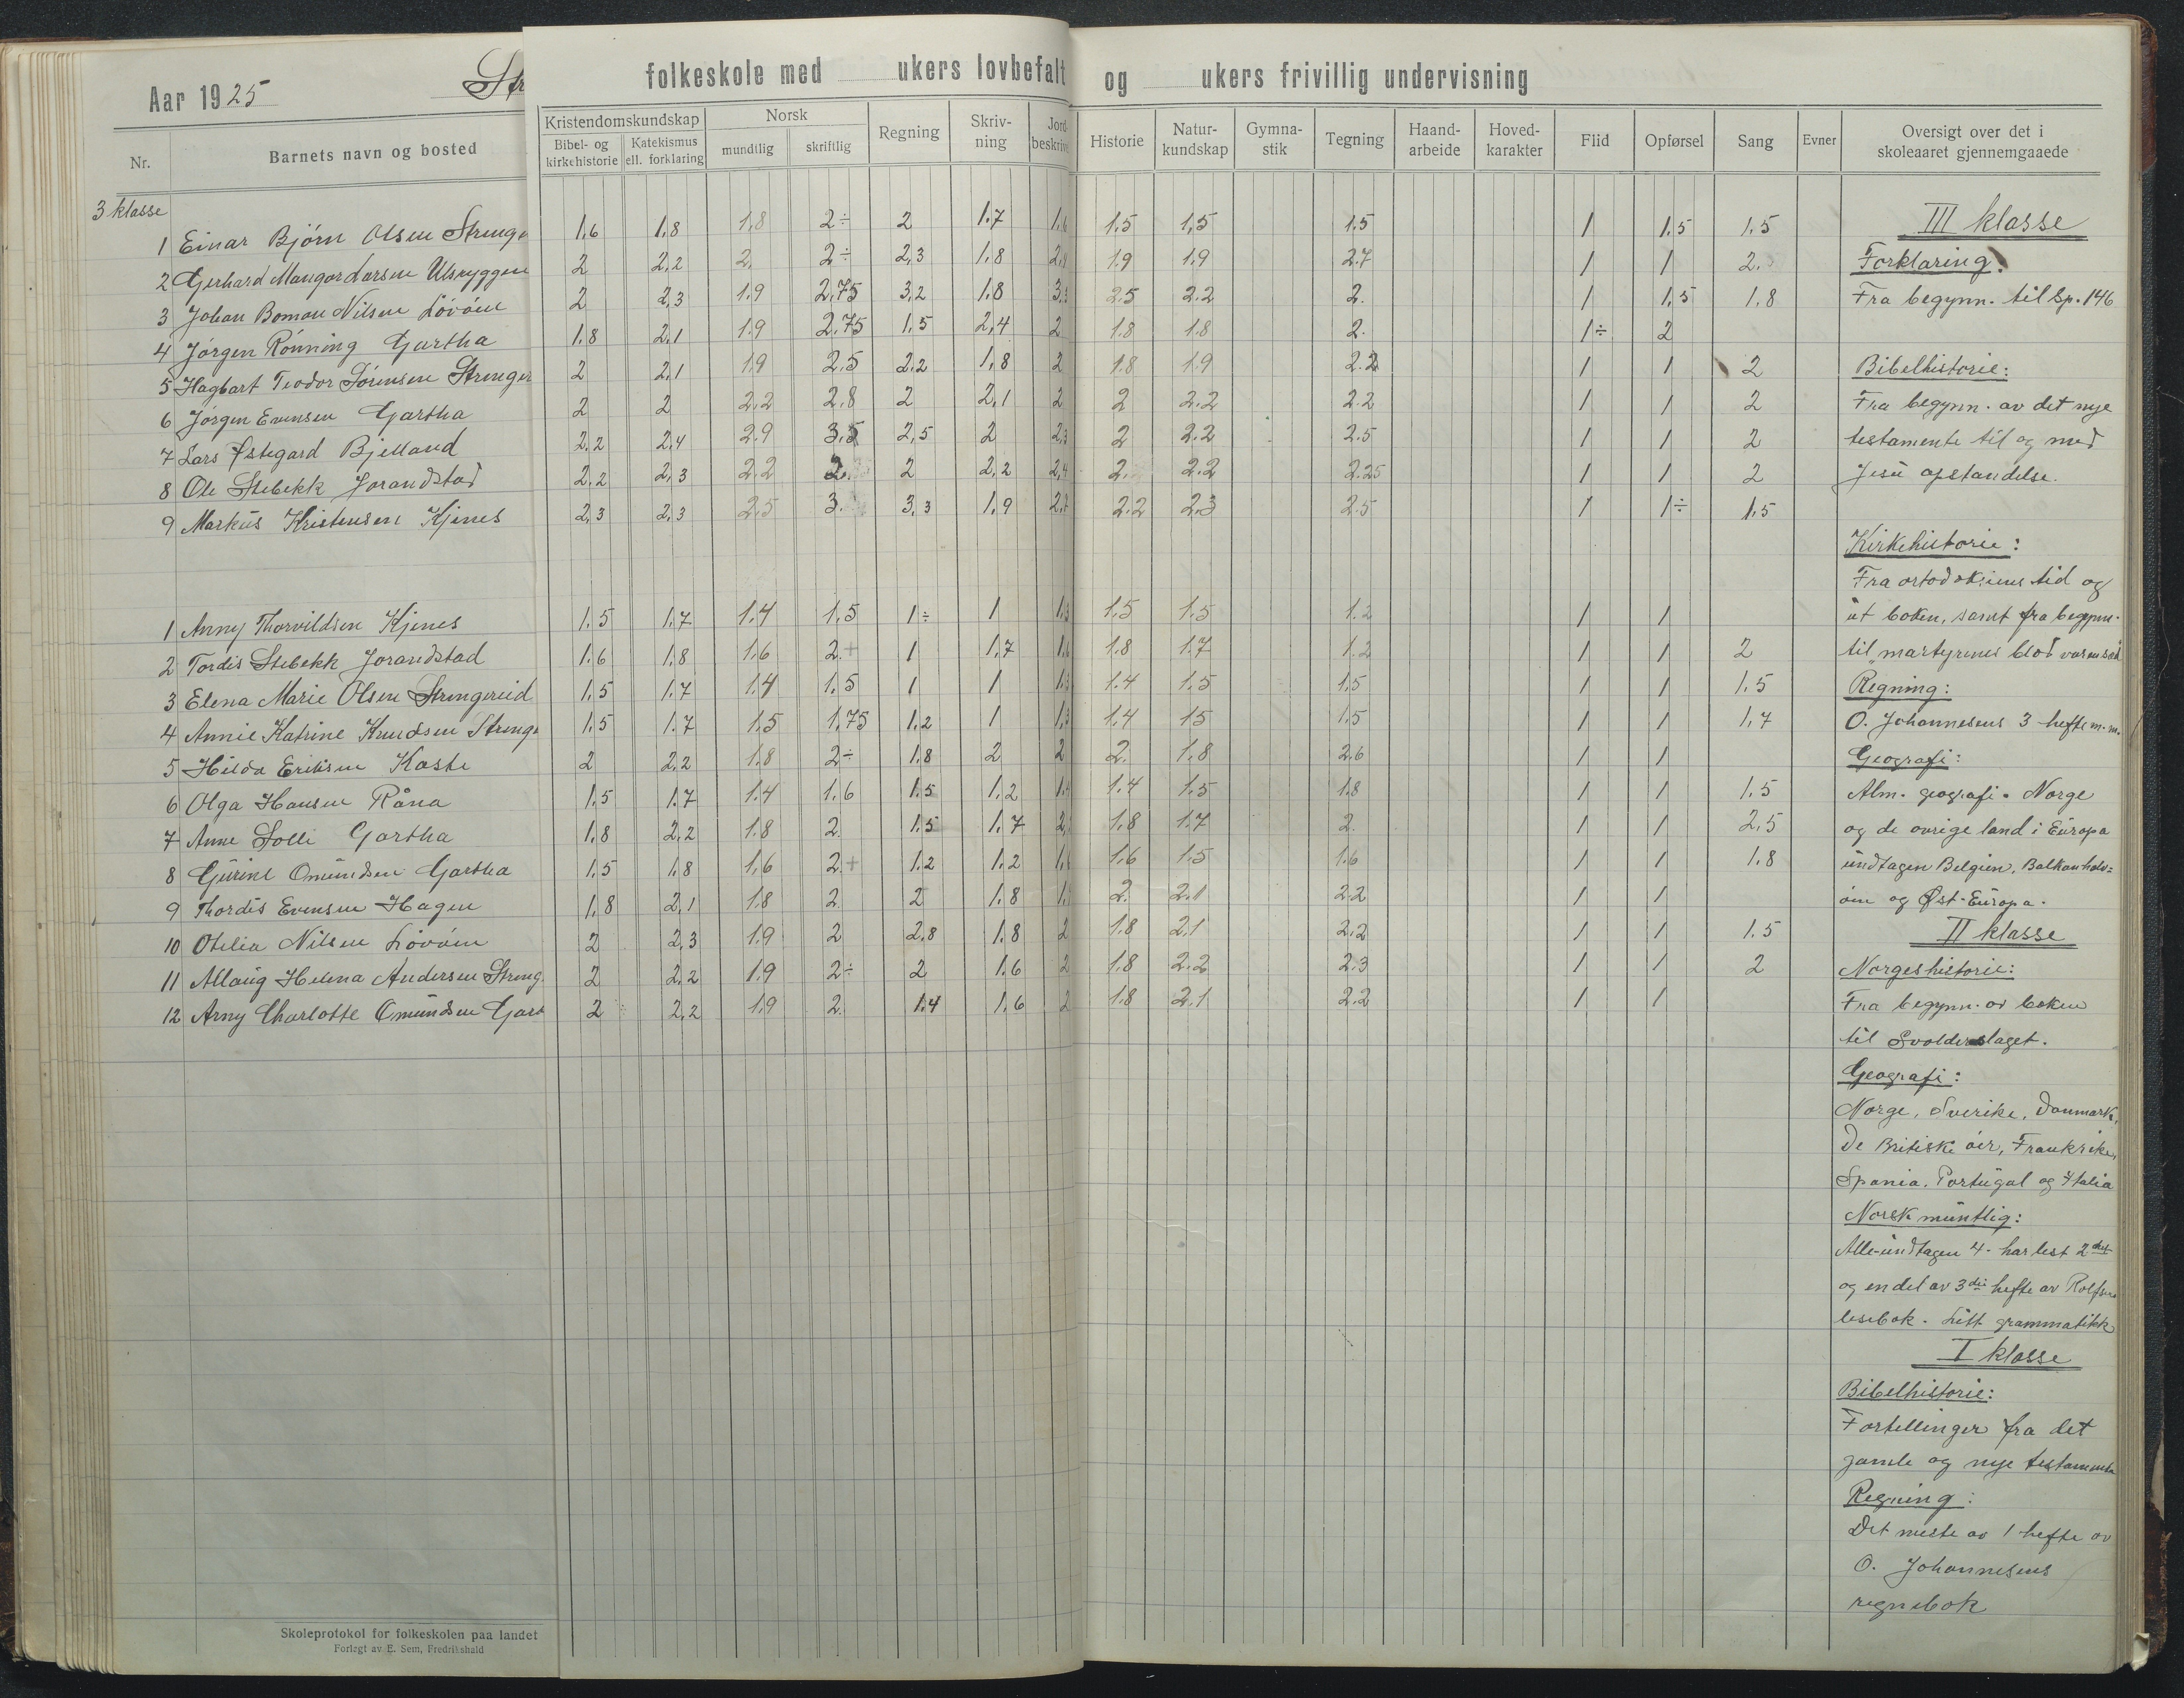 Aar 1925 Str
folkeskole med ukers lovbefalt og ukers frivillig undervisning
Nr. Barnets navn og bosted Kristendomskundskap Bibel- og kirkehistorie Katekismus ell. forklaring Norsk mundtlig skriftlig Regning Skriv-ning Jord-beskrive Historie Natur-kundskap Gymna-stik Tegning Haand-arbeide Hoved-karakter Flid Opførsel Sang Evner Oversigt over det i skoleaaret gjennemgaaede
3 klasse
1 Einar Bjørn Olsen Strenge 1.6 1.8 1.8 2÷ 2 1.7 1.6 1.5 1.5 1.5 1 1.5 1.5
2 Gerhard Mangor Larsen Ulsryggen 2 2,2 2. 2÷ 2,3 1.8 2,8 1.9 1.9 2.7 1 1 2.
3 Johan Boman Nilsen Løvåen 2 2,3 1.9 2.75 3,2 1.8 3.3 2.5 2.2 2. 1 1,5 1.8
4 Jørgen Rønning Gartha 1.8 2,1 1.9 2.75 1.5 2,4 2 1.8 1.8 2. 1÷ 2
5 Hagbart Teodor Sørensen Strenger 2 2,1 1.9 2.5 2,2 1,8 2 1.8 1.9 2.2 1 1 2
6 Jørgen Evensen Gartha 2 2 2,2 2,8 2 2,1 2 2 2.2 2.2 1 1 2
7 Lars Østegard Bjelland 2,2 2,4 2.9 3.5 2,5 2 2,3 2 2.2 2.5 1 1 2
8 Ole Stebekk Jorandstad 2,2 2,3 2.2 2. 2 2,2 2,4 2. 2.2 2.25 1 1 2
9 Markus Kristensen Kjenes 2,3 2,3 2.5 3. 3,3 1.9 2,7 2.2 2.3 2.5 1 1÷ 1.5
1 Anny Thorvildsen Kjenes 1.5 1.7 1.4 1.5 1÷ 1 1.3 1.5 1.5 1.2 1 1
2 Tordis Stebekk Jorandstad 1.6 1.8 1.6 2.+ 1 1.7 1.6 1.8 1.7 1.2 1 1 2
3 Elena Marie Olsen Strengereid 1.5 1.7 1.4 1.5 1 1 1.3 1.4 1.5 1.5 1 1 1.5
4 Annie Katrine Knudsen Strenge 1.5 1.7 1.5 1.75 1.2 1 1,3 1.4 1.5 1.5 1 1 1,7
5 Hilda Eriksen Kaste 2 2,2 1.8 2÷ 1.8 2 2 2. 1.8 2.6 1 1
6 Olga Hansen Råna 1.5 1.7 1.4 1.6 1.5 1.2 1.4 1.4 1.5 1.8 1 1 1.5
7 Anne Solli Gartha 1.8 2.2 1.8 2. 1.5 1.7 2, 1.8 1.7 2. 1 1 2,5
8 Gurine Omundsen Gartha 1.5 1.8 1.6 2.+ 1.2 1.2 1.6 1.6 1.5 1.6 1 1 1.8
9 Thordis Evensen Hagen 1.8 2,1 1.8 2 2 1.8 1, 2. 2.1 2.2 1 1
10 Otelia Nilsen Løvåen 2 2,3 1.9 2 2,8 1.8 2 1.8 2.1 2.2 1 1 1.5
11 Allaug Helena Andersen Streng. 2 2,2 1.9 2÷ 2 1.6 2 1.8 2.2 2.3 1 1 2
12 Arny Charlotte Omundsen Gart 2 2,2 1.9 2. 1.4 1.6 2 1.8 2.1 2.2 1 1
III klasse
Forklaring.
Fra begynn. til Sp. 146
Bibelhistorie:
Fra begynn. av det nye
testamente til og med
Jesu opstandelse.
Kirkehistorie:
Fra ortodoksiens tid og
ut boken, samt fra begynn.
til "martyrenes blod var en sæd
Regning:
O. Johannesens 3 hefte m.m.
Geografi:
Alm. geografi. Norge
og de øvrige land i Europa
undtagen Belgien, Balkanhalv=
øen og Øst-Europa.
II klasse
Norgeshistorie:
Fra begynn. av boken
til Svolderslaget.
Geografi:
Norge, Sverike, Danmark,
De Britiske øer, Frankrike,
Spania, Portugal og Italia
Norsk muntlig:
Alle undtagen 4. har lest 2det
og en del av 3die hefte av Rolfsens
lesebok. Litt grammatikk
I klasse
Bibelhistorie:
Fortellinger fra det
gamle og nye testamente
Regning:
Det meste av 1 hefte av
O. Johannesens
regnebok
Skoleprotokol for folkeskolen paa landet
Forlagt av E. Sem, Fredrikshald